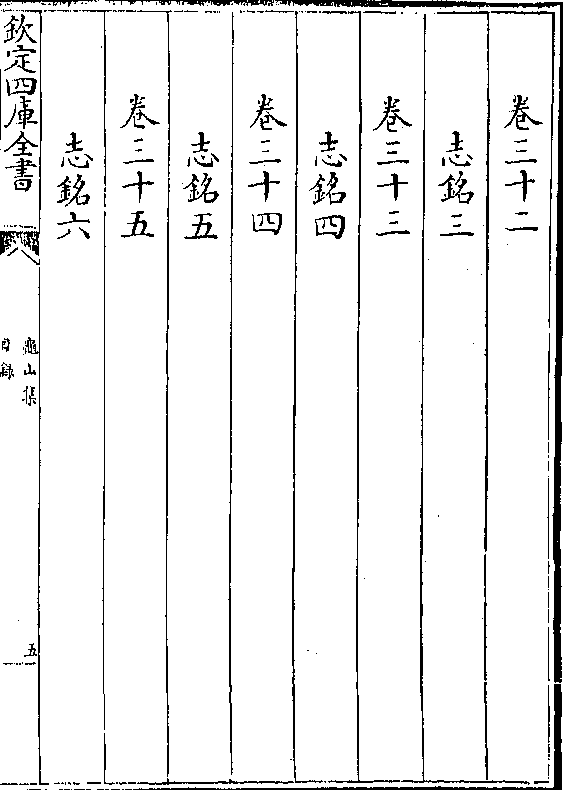 卷三十二
志銘三
卷三十三
志銘四
卷三十四
志銘五
卷三十五
志銘六
欽定四庫全書
龜山集
目録
五